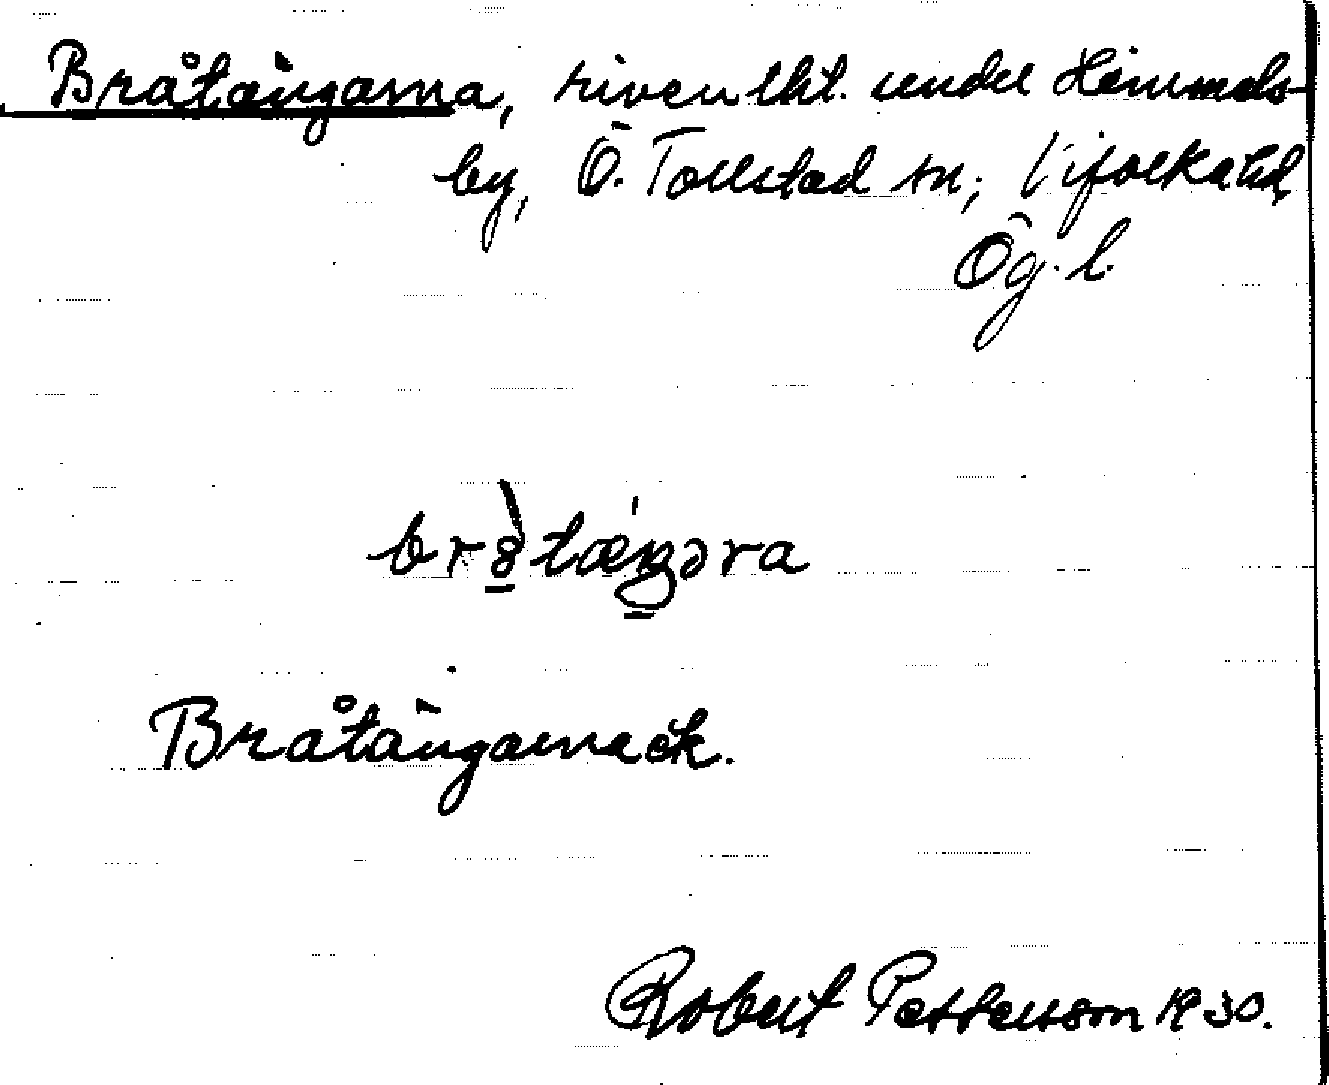 Bråtängarna, riven lht. under Hemmels-
by, Ö. Tollstad sn; Vifolka hd
Ög. l.
br tæŋəra
Bråtängarna ek.
Robert Pettersson 1930.